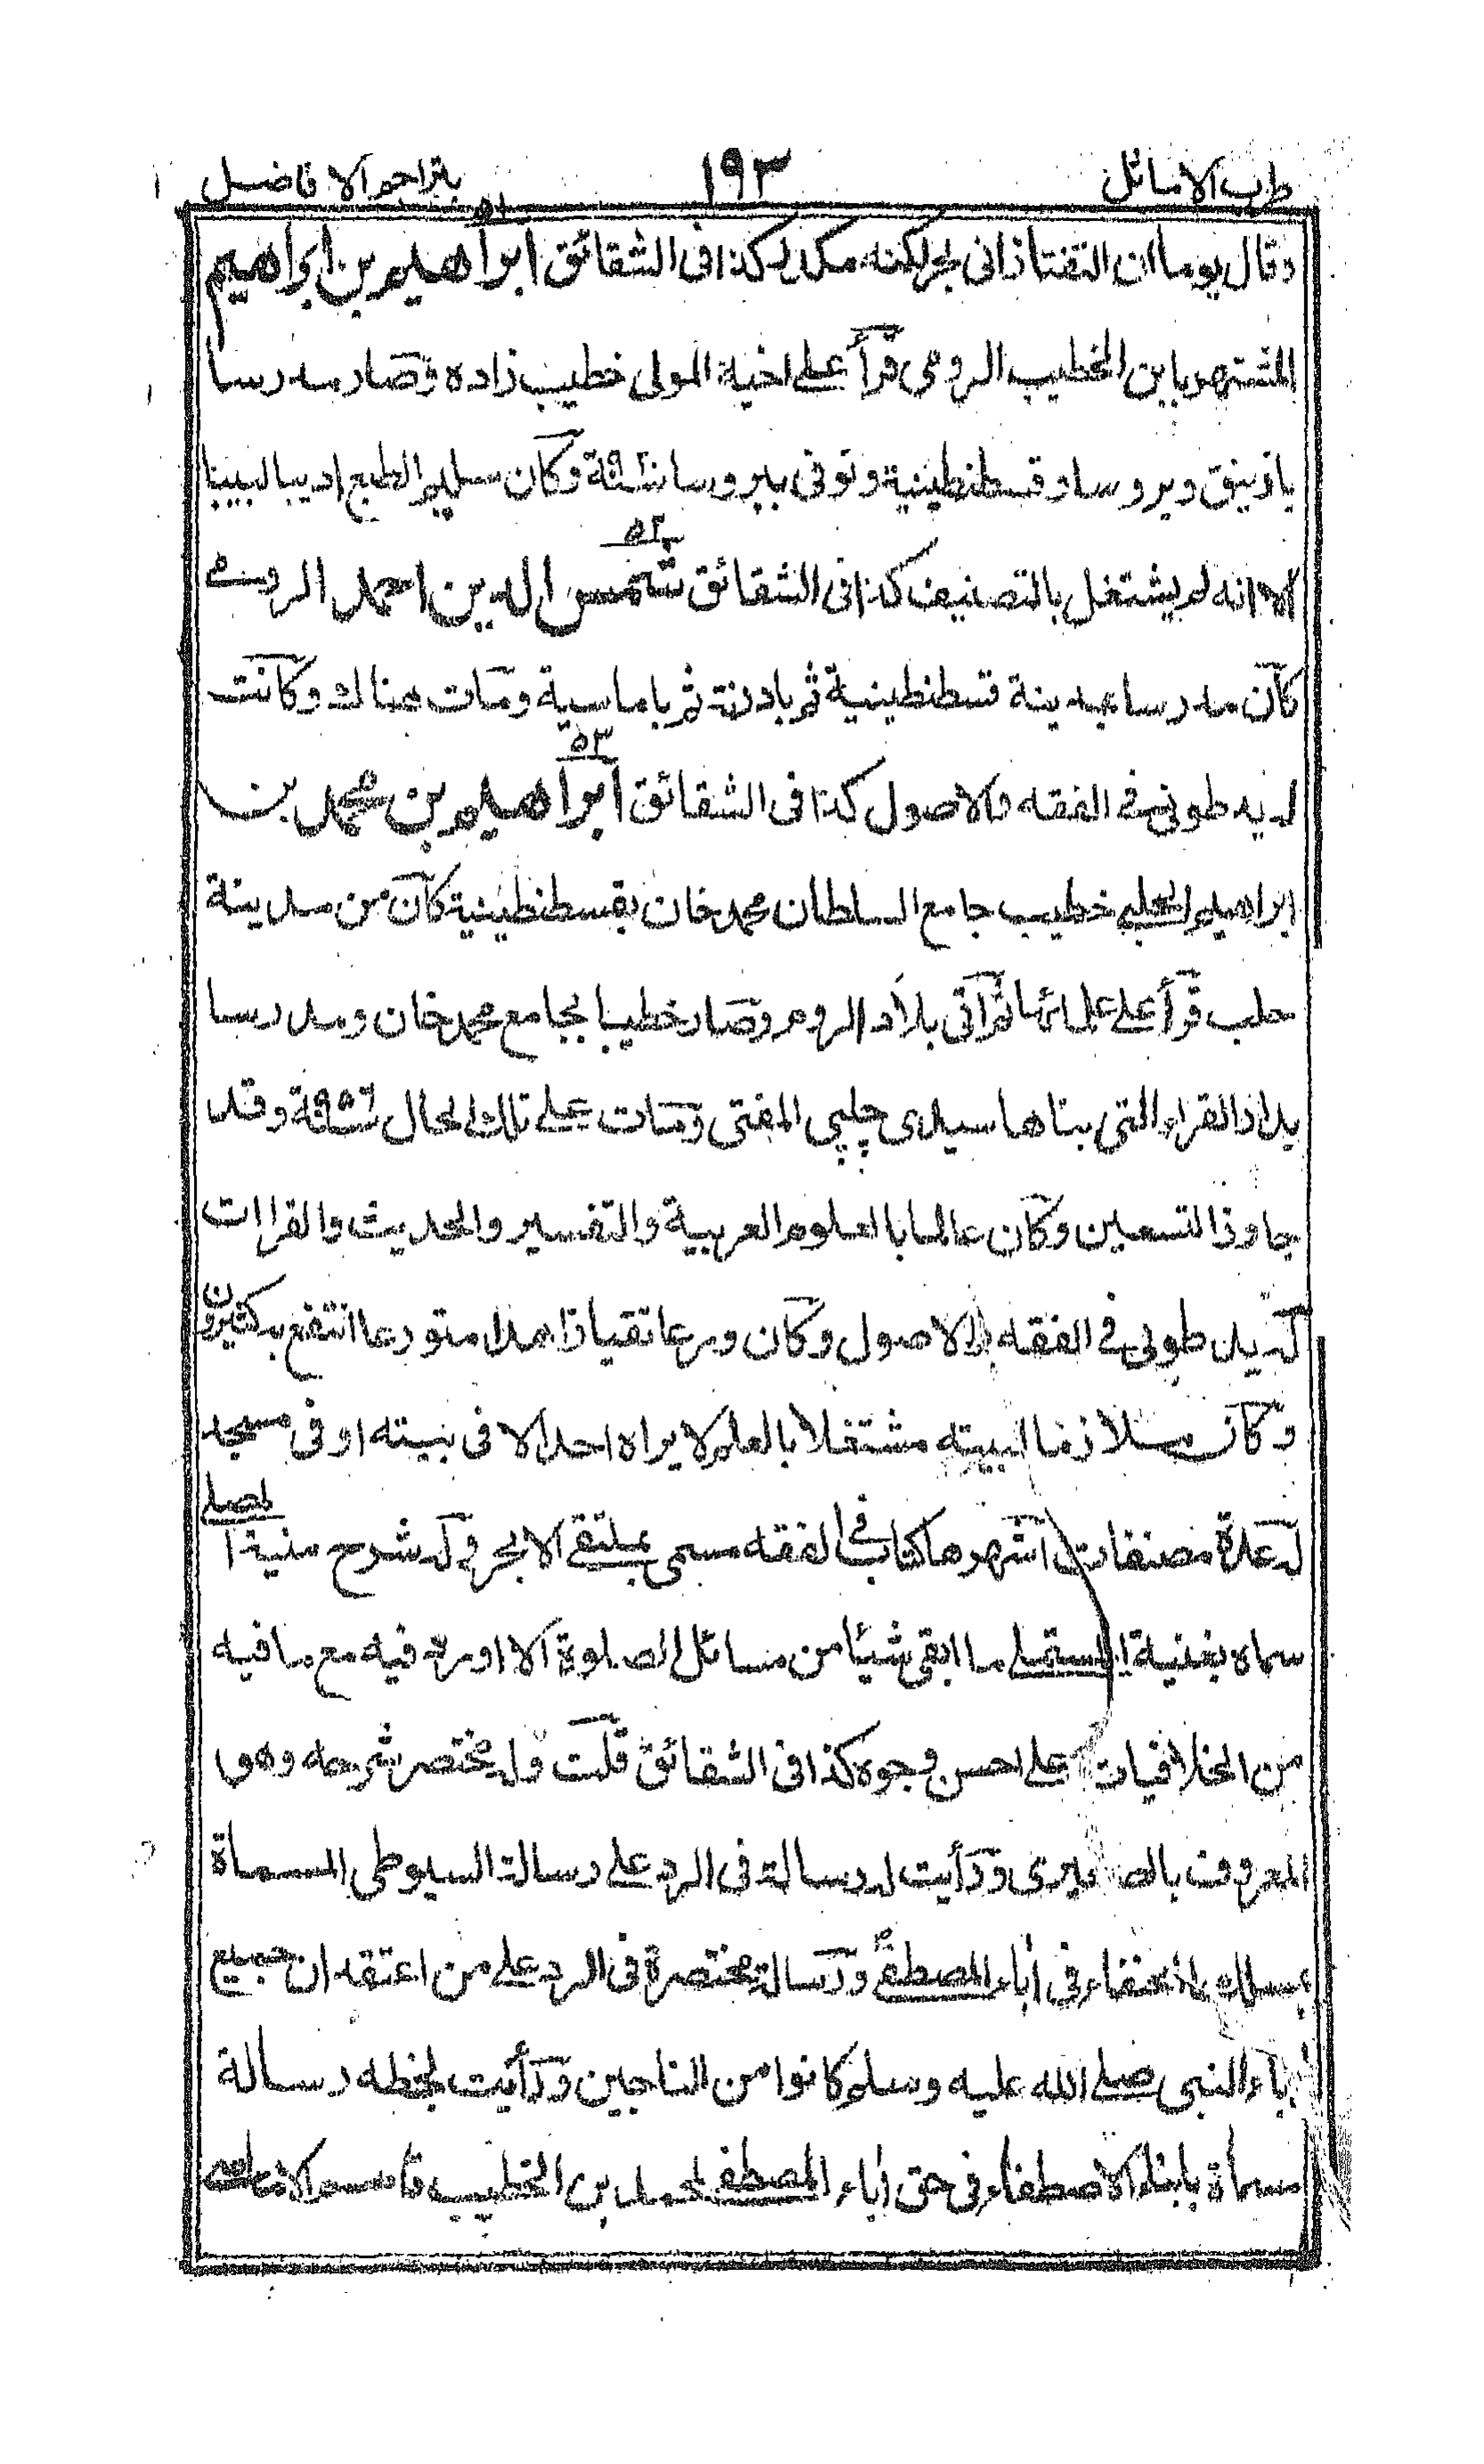 طرب الاماثل ١٩٣ بتراجم الافاضل
٥١
وقال يوما ان التفتازانی بحر لكنه مكدر كذا فی الشقائق ابراهيم بن ابراهيم
المشتهر بابن الخطيب الرومی قرأ علے اخيه المولی خطيب زاده وصار مدرسا
بازنيق وبروسا وقسطنطينية وتوفی ببروسا سنة ٩٢٠ وكان سليم الطبع اديبا لبيبا
٥٢
الا انه لم يشتغل بالتصنيف كذا فی الشقائق شمس الدين احمد الرومے
كان مدرسا بمدينة قسطنطينية ثم بادرنه ثم باماسية ومات هناك وكانت
٥٣
له يد طولی فے الفقه والاصول كذا فی الشقائق ابراهيم بن محمد بن
ابراهيم الحلبی خطيب جامع السلطان محمد خان بقسطنطينية كان من مدينة
حلب قرأ علے علمائها ثم اتی بلاد الروم وصار خطيبا بجامع محمد خان ومدرسا
بدار القراء التی بناها سيدی چلپی المفتی ومات علے تلك الحال سنة ٩٥٦ وقد
جاوز التسعين وكان عالما بالعلوم العربية والتفسير والحديث والقراات
له يد طولی فے الفقه والاصول وكان ورعا تقيا زاهدا متورعا انتفع به كثيرون
وكان ملازما لبيته مشتغلا بالعلم لا يراه احد الا فی بيته او فی مسجد
له عدة مصنفات اشهرها كتاب فی الفقه مسمی بملتقے الابحر وله شرح منية المصلے
سماه بغنية المستملے ما ابقی شيئا من مسائل الصلوة الا اورده فيه مع ما فيه
من الخلافيات علے احسن وجوه كذا فی الشقائق قلت وله مختصر شرحه وهو
المعروف بالصغيری ورأيت له رسالة فی الرد علے رسالة السيوطی المسماة
بمسالك الحنفاء فی اباء المصطفے ورسالة مختصرة فی الرد علے من اعتقد ان جميع
اباء النبی صلے الله عليه وسلم كانوا من الناجين ورأيت بخطه رسالة
مسماة بانباء الاصطفاء فی حق اباء المصطفے لمحمد بن الخطيب قاسم الاماسے